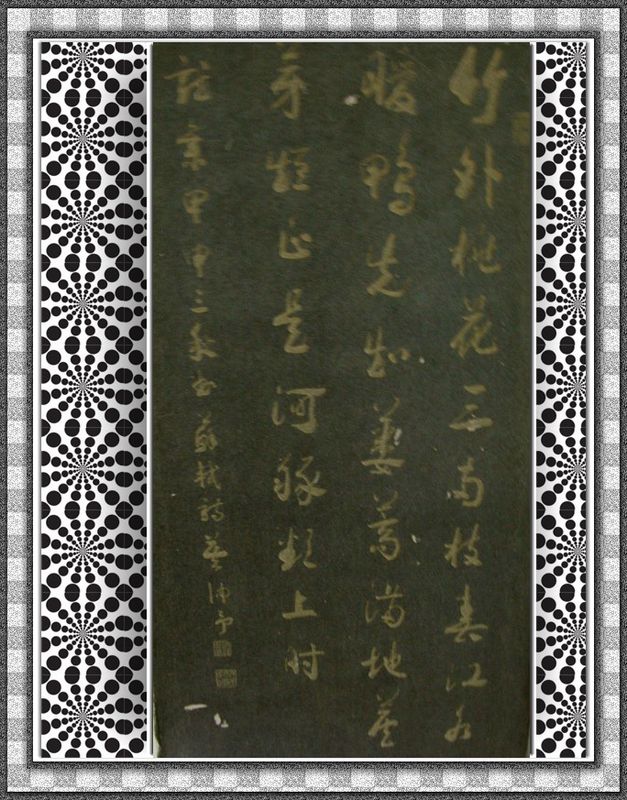 竹外桃花三两枝春江水
暖鸭先知蒌蒿满地芦
芽短正是河豚欲上时
甲申三秋书苏轼诗